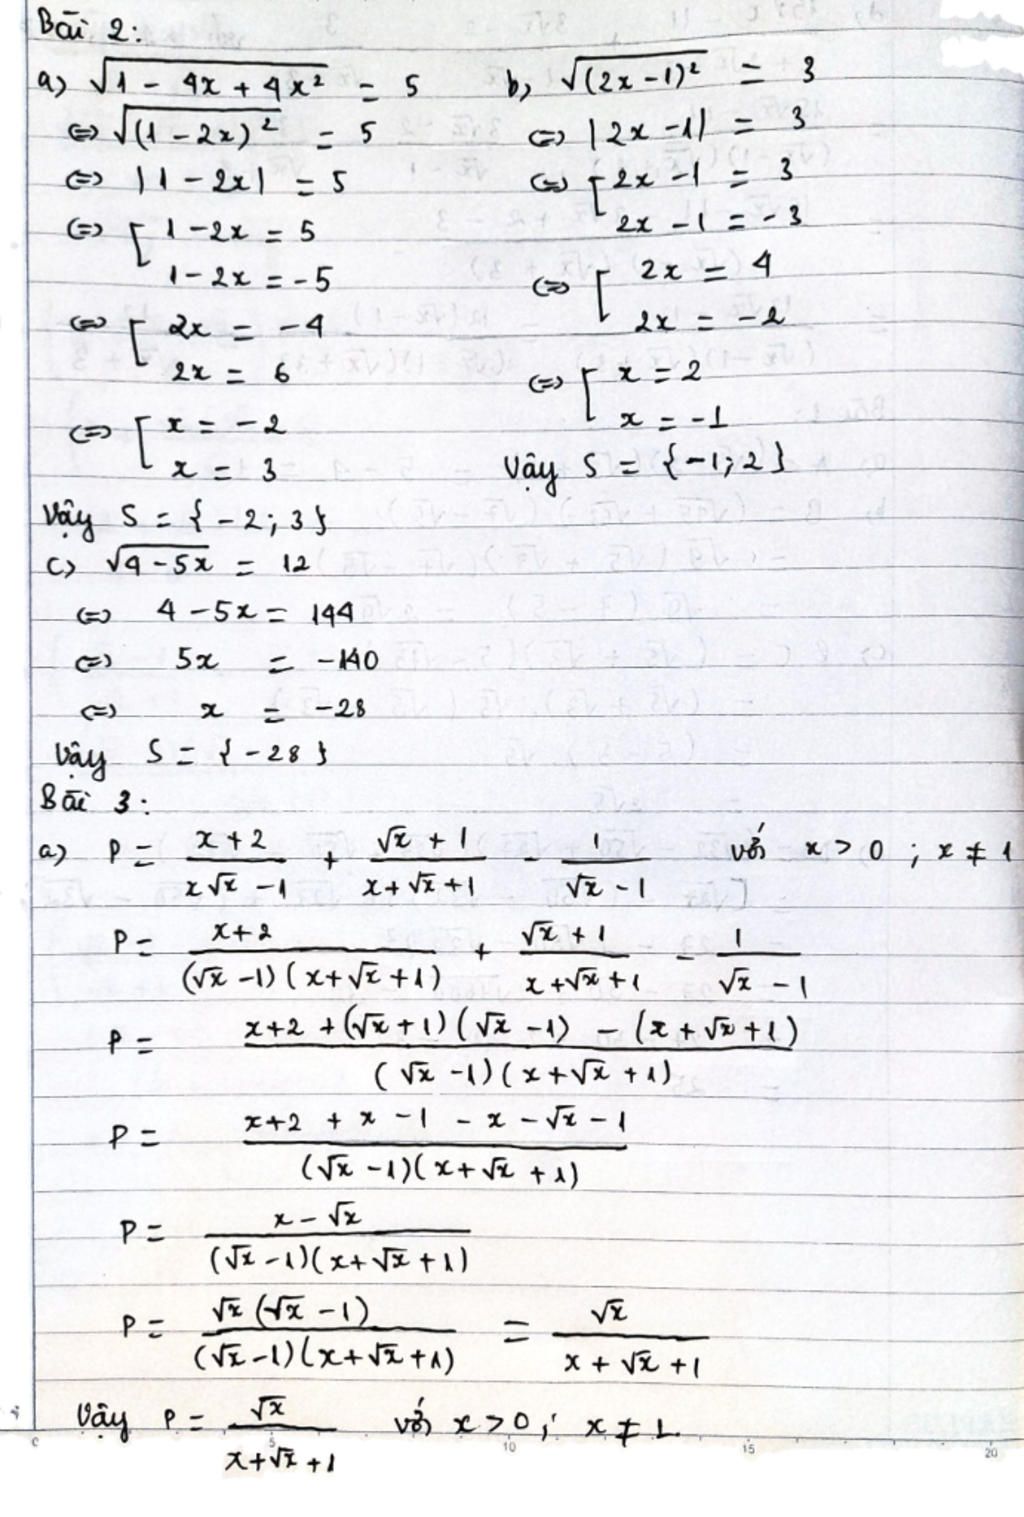 Bài 2:
a) √(1 - 4x + 4x²) = 5
⇔ √((1 - 2x)²) = 5
⇔ |1 - 2x| = 5
⇔ [ 1 - 2x = 5
1 - 2x = -5
⇔ [ 2x = -4
2x = 6
⇔ [ x = -2
x = 3
Vậy S = {-2; 3}
b) √((2x - 1)²) = 3
⇔ |2x - 1| = 3
⇔ [ 2x - 1 = 3
2x - 1 = -3
⇔ [ 2x = 4
2x = -2
⇔ [ x = 2
x = -1
Vậy S = {-1; 2}
c) √(4 - 5x) = 12
⇔ 4 - 5x = 144
⇔ 5x = -140
⇔ x = -28
Vậy S = {-28}
Bài 3:
a) P = (x + 2)/(x√x - 1) + (√x + 1)/(x + √x + 1) - 1/(√x - 1) với x > 0 ; x ≠ 1
P = (x + 2)/((√x - 1)(x + √x + 1)) + (√x + 1)/(x + √x + 1) - 1/(√x - 1)
P = (x + 2 + (√x + 1)(√x - 1) - (x + √x + 1))/((√x - 1)(x + √x + 1))
P = (x + 2 + x - 1 - x - √x - 1)/((√x - 1)(x + √x + 1))
P = (x - √x)/((√x - 1)(x + √x + 1))
P = (√x(√x - 1))/((√x - 1)(x + √x + 1)) = √x/(x + √x + 1)
Vậy P = √x/(x + √x + 1) với x > 0 ; x ≠ 1.
5 10 15 20